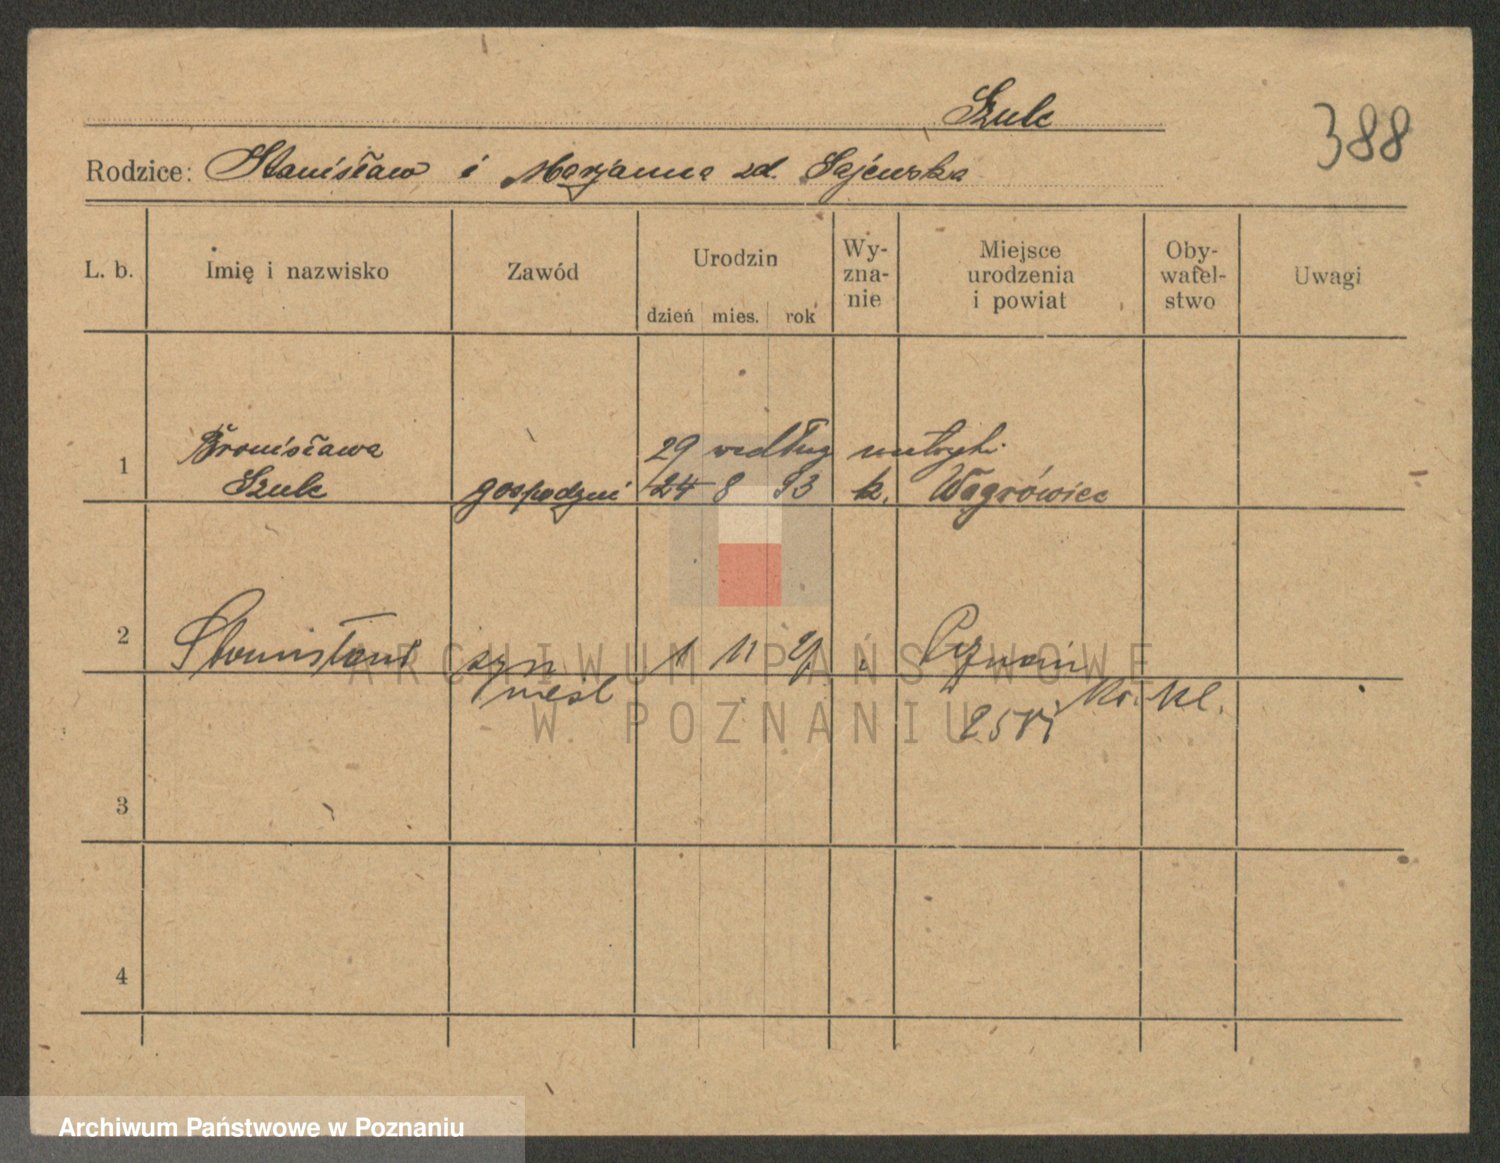 Szulc
388
Rodzice: Stanisław i Marjanna zd. Sajewska
L. b. Imię i nazwisko Zawód Urodzin dzień mies. rok Wy-zna-nie Miejsce urodzenia i powiat Oby-watel-stwo Uwagi
29 według metryki
1 Bronisława
Szulc gospodyni 24 8 93 k. Wągrówiec
2 Stanisław syn 1 11 Poznań
nieśl
3
4
ARCHIWUM PAŃSTWOWE
W POZNANIU
Archiwum Państwowe w Poznaniu